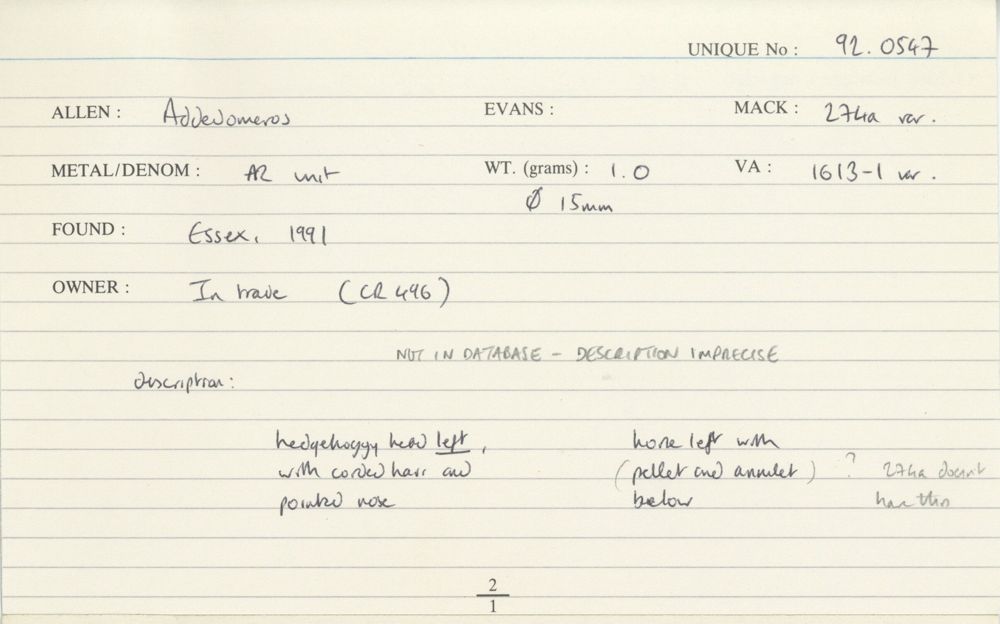 UNIQUE No : 92.0547
ALLEN : Addedomeros EVANS : MACK : 274a var.
METAL/DENOM : AR unit WT. (grams) : 1.0 VA : 1613-1 var.
Ø 15mm
FOUND : Essex, 1991
OWNER : In trade (CR 496)
NOT IN DATABASE - DESCRIPTION IMPRECISE
description:
hedgehoggy head left, horse left with
with corded hair and (pellet and annulet) ? 274a doesnt
pointed nose below have this
2
1